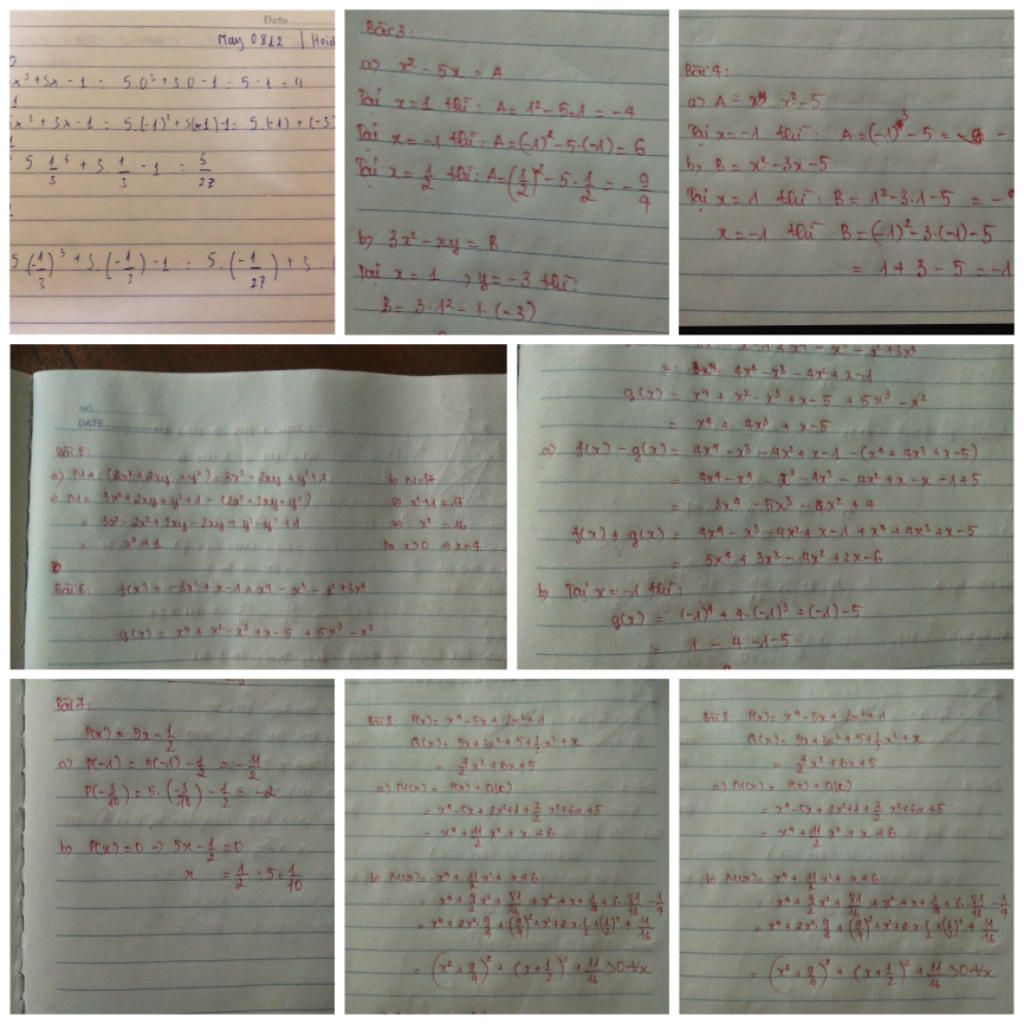 Date
May 0812
x³ + 3x - 1 = 5.0³ + 3.0 - 1 = 5 - 1 = 4
x³ + 3x - 1 = 5.(-1)³ + 3(-1) - 1 = 5.(-1) + (-3)
5 1/3 ³ + 3 1/3 - 1 = 5/27
5(-1/3)³ + 3.(-1/3) - 1 = 5.(-1/27) + 3.
Bài 3
a) x² - 5x = A
Tại x = 1 thì: A = 1² - 5.1 = -4
Tại x = -1 thì: A = (-1)² - 5.(-1) = 6
Tại x = 1/2 thì: A = (1/2)² - 5.1/2 = -9/4
b) 3x² - xy = B
Tại x = 1 ; y = -3 thì:
B = 3.1² - 1.(-3)
Bài 4:
a) A = x³ - 5
Tại x = -1 thì: A = (-1)³ - 5 =
b) B = x² - 3x - 5
Tại x = 1 thì: B = 1² - 3.1 - 5 = -
x = -1 thì B = (-1)² - 3.(-1) - 5
= 1 + 3 - 5 = -1
NO
DATE
Bài 5:
a) M + (2x² + 2xy + y²) = 3x² + 2xy + y² + 1
M = 3x² + 2xy + y² + 1 - (2x² + 2xy + y²)
= 3x² - 2x² + 2xy - 2xy + y² - y² + 1
= x² + 1
b) M = 17
⇔ x² + 1 = 17
⇔ x² = 16
x > 0 ⇒ x = 4
Bài 6: f(x) = -3x² + x - 1 + x⁴ - x³ - x² + 3x⁴
g(x) = x⁴ + x² - x³ + x - 5 + 5x³ - x²
= 4x⁴ - x³ - 4x² + x - 1
g(x) = x⁴ + x² - x³ + x - 5 + 5x³ - x²
= x⁴ + 4x³ + x - 5
a) f(x) - g(x) = 4x⁴ - x³ - 4x² + x - 1 - (x⁴ + 4x³ + x - 5)
= 4x⁴ - x⁴ - x³ - 4x³ - 4x² + x - x - 1 + 5
= 3x⁴ - 5x³ - 4x² + 4
f(x) + g(x) = 4x⁴ - x³ - 4x² + x - 1 + x⁴ + 4x³ + x - 5
= 5x⁴ + 3x³ - 4x² + 2x - 6
b) Tại x = -1 thì:
g(x) = (-1)⁴ + 4.(-1)³ + (-1) - 5
= 1 - 4 - 1 - 5
Bài 7:
P(x) = 5x - 1/2
a) P(-1) = 5(-1) - 1/2 = -11/2
P(-3/10) = 5.(-3/10) - 1/2 = -2
b) P(x) = 0 ⇒ 5x - 1/2 = 0
x = 1/2 : 5 = 1/10
Bài 8: P(x) = x⁴ - 5x + 2x² + 1
Q(x) = 5x + 3x² + 5 + 1/2 x² + x
= 7/2 x² + 6x + 5
a) M(x) = P(x) + Q(x)
= x⁴ - 5x + 2x² + 1 + 7/2 x² + 6x + 5
= x⁴ + 11/2 x² + x + 6
b) M(x) = x⁴ + 11/2 x² + x + 6
= x⁴ + 9/2 x² + 81/16 + x² + x + 1/4 + 6 - 81/16 - 1/4
= x⁴ + 2x².9/4 + (9/4)² + x² + 2.x.1/2 + (1/2)² + 11/16
= (x² + 9/4)² + (x + 1/2)² + 11/16 > 0 ∀x
Bài 8: P(x) = x⁴ - 5x + 2x² + 1
Q(x) = 5x + 3x² + 5 + 1/2 x² + x
= 7/2 x² + 6x + 5
a) M(x) = P(x) + Q(x)
= x⁴ - 5x + 2x² + 1 + 7/2 x² + 6x + 5
= x⁴ + 11/2 x² + x + 6
b) M(x) = x⁴ + 11/2 x² + x + 6
= x⁴ + 9/2 x² + 81/16 + x² + x + 1/4 + 6 - 81/16 - 1/4
= x⁴ + 2x².9/4 + (9/4)² + x² + 2.x.1/2 + (1/2)² + 11/16
= (x² + 9/4)² + (x + 1/2)² + 11/16 > 0 ∀x